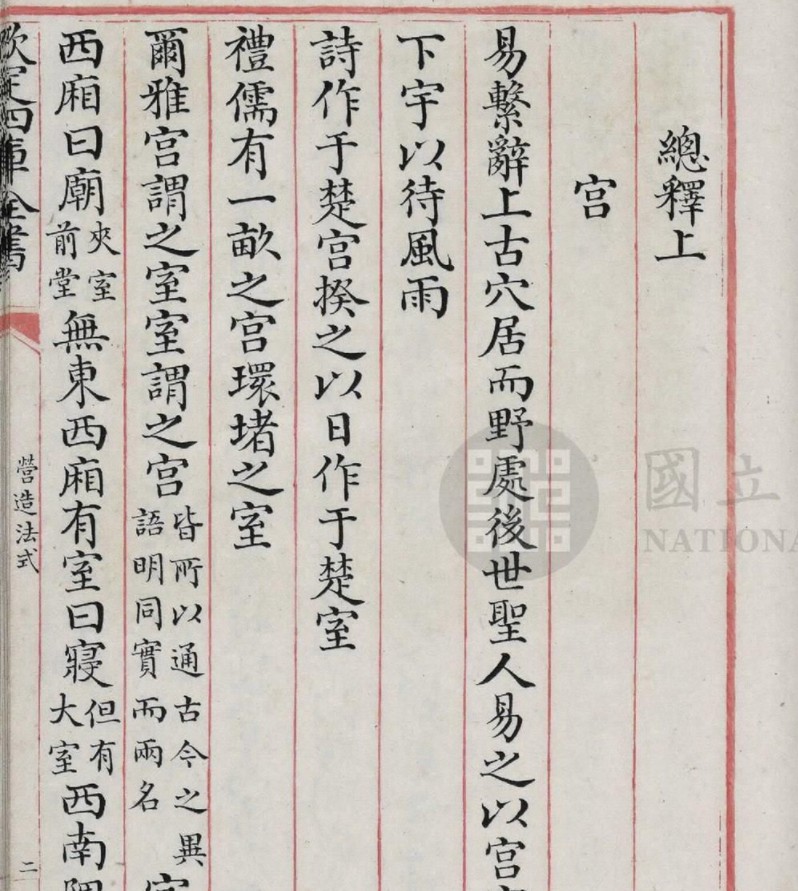 總釋上
宮
易繫辭上古穴居而野處後世聖人易之以宮
下宇以待風雨
詩作于楚宮揆之以日作于楚室
禮儒有一畝之宮環堵之室
爾雅宮謂之室室謂之宮皆所以通古今之異語明同實而兩名
西廂曰廟夾室前堂無東西廂有室曰寢但有大室西南
欽定四庫全書
營造法式
二
國立
NATIONA